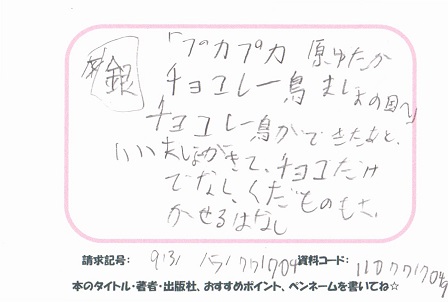 銀
「プカプカ 原ゆたか
チョコレー島 まほうの国へ」
チョコレー島ができたあと、
いいまほうがきて、チョコだけ
でなし、くだものもさ
かせるはなし
請求記号: 913 資料コード:
本のタイトル・著者・出版社、おすすめポイント、ペンネームを書いてね☆